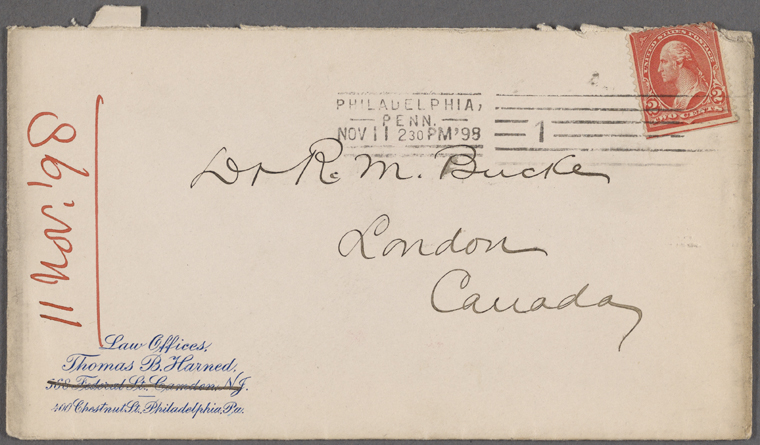 UNITED STATES POSTAGE
2 2
TWO CENTS
PHILADELPHIA,
PENN.
NOV 11 2 30 PM '98
1
Dr R. M. Bucke
London
Canada
11 Nov. '98
Law Offices,
Thomas B. Harned,
Federal St. Camden, N.J.
400 Chestnut St. Philadelphia, Pa.